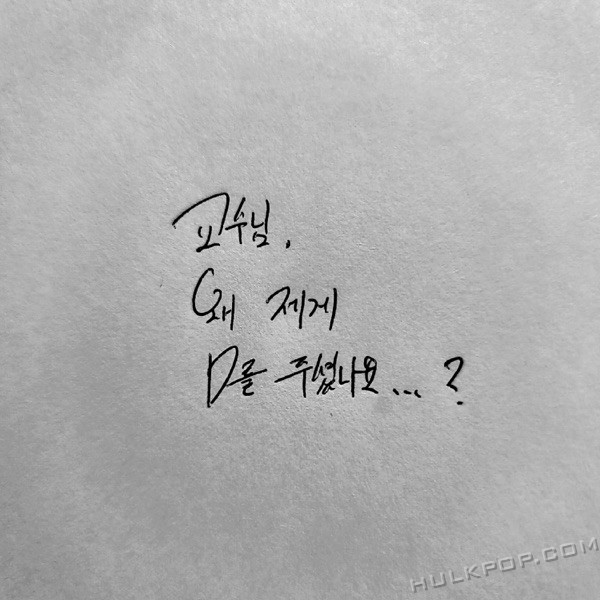 교수님,
왜 제게
D를 주셨나요...?
HULKPOP.COM